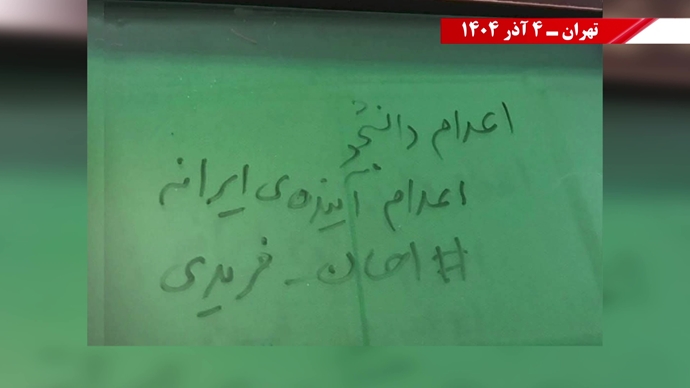 تهران ـ ۴ آذر ۱۴۰۴
اعدام دانشجو
اعدام آینده‌ی ایرانه
#احسان_فریدی